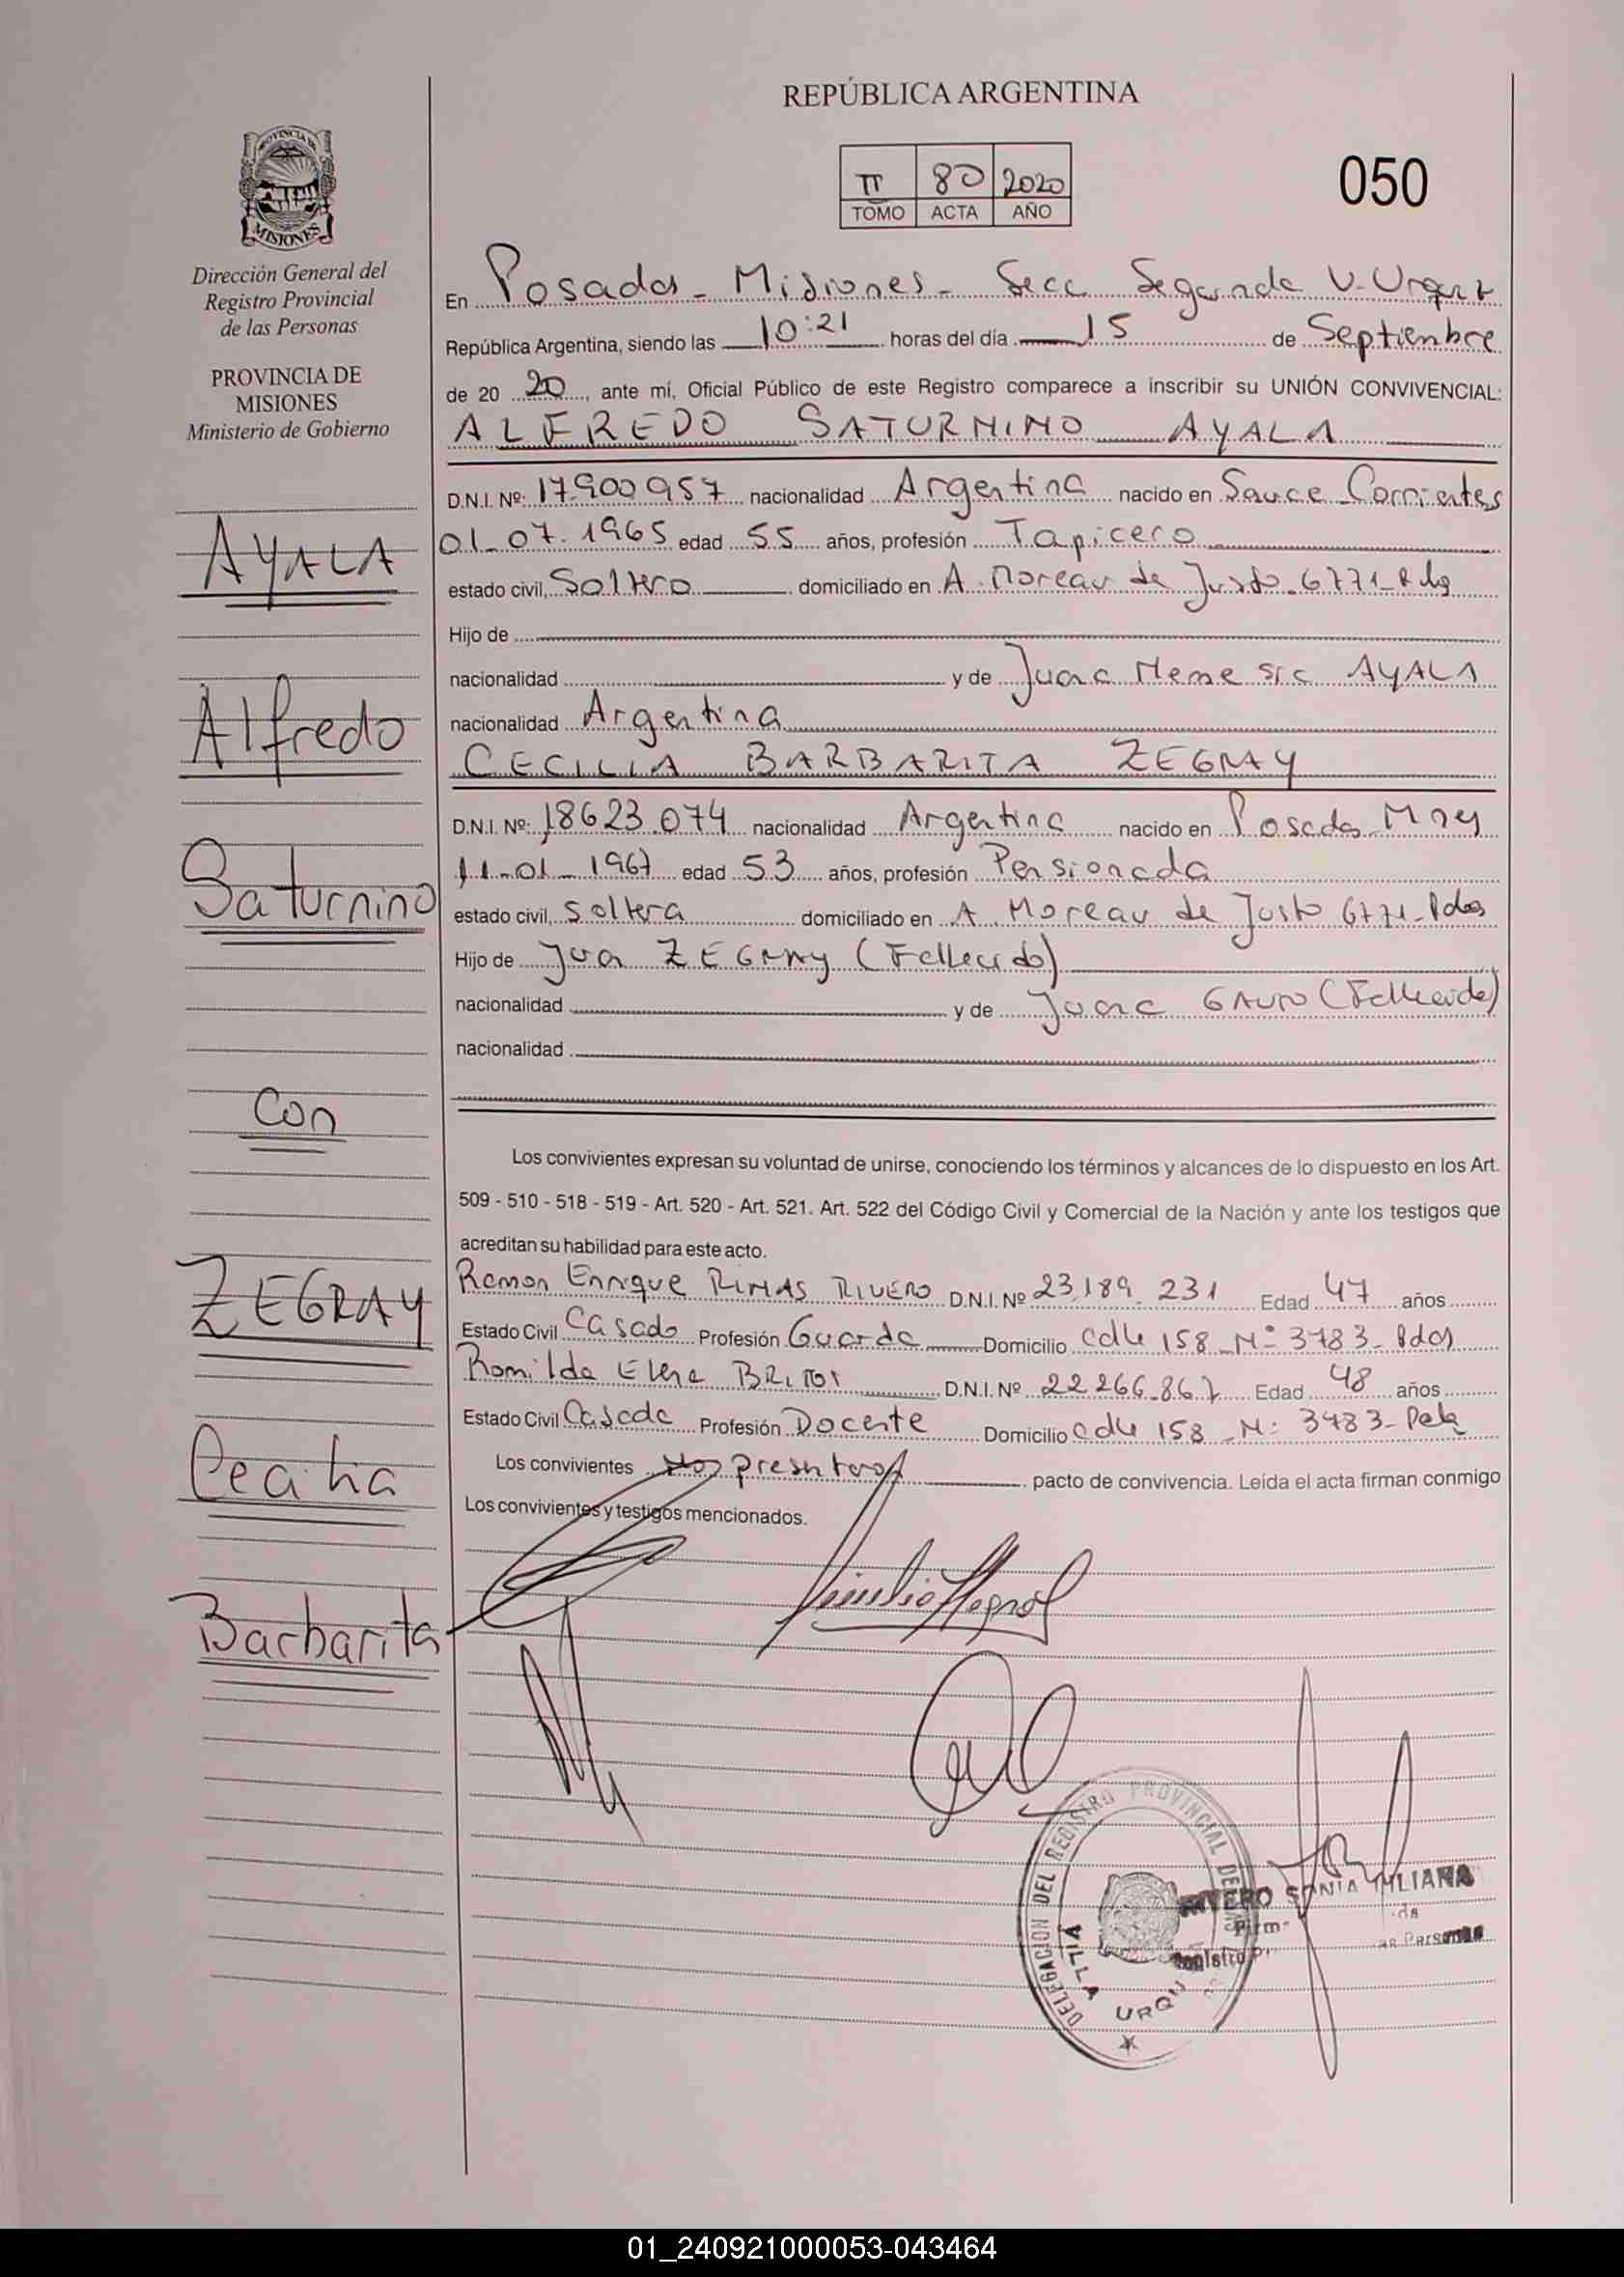 REPÚBLICA ARGENTINA
PROVINCIA DE
MISIONES
II 80 2020
TOMO ACTA AÑO
050
Dirección General del
Registro Provincial
de las Personas
PROVINCIA DE
MISIONES
Ministerio de Gobierno
En Posadas - Misiones - Secc Segunda V. Urquiz
República Argentina, siendo las 10:21 horas del día 15 de Septiembre
de 20 20, ante mí, Oficial Público de este Registro comparece a inscribir su UNIÓN CONVIVENCIAL:
ALFREDO SATURNINO AYALA
D.N.I. Nº: 17.900957 nacionalidad Argentina nacido en Sauce Corrientes
01-07-1965 edad 55 años, profesión Tapicero
estado civil, Soltero domiciliado en A. Moreau de Justo 6771-Pdas
Hijo de
nacionalidad y de Juana Neme sic AYALA
nacionalidad Argentina
CECILIA BARBARITA ZEGRAY
D.N.I. Nº: 18623.074 nacionalidad Argentina nacido en Posadas Mnes
11-01-1967 edad 53 años, profesión Pensionada
estado civil, Soltera domiciliado en A. Moreau de Justo 6771-Pdas
Hijo de Juan ZEGRAY (Fallecido)
nacionalidad y de Juana (Fallecida)
nacionalidad
AYALA
Alfredo
Saturnino
Con
ZEGRAY
Cecilia
Barbarita
Los convivientes expresan su voluntad de unirse, conociendo los términos y alcances de lo dispuesto en los Art.
509 - 510 - 518 - 519 - Art. 520 - Art. 521. Art. 522 del Código Civil y Comercial de la Nación y ante los testigos que
acreditan su habilidad para este acto.
Ramon Enrique RIVERO D.N.I. Nº 23,189.231 Edad 47 años
Estado Civil Casado Profesión Guarda Domicilio Calle 158 Nº 3783-Pdas
Romilda Elena D.N.I. Nº 22.266.867 Edad 48 años
Estado Civil Casada Profesión Docente Domicilio Calle 158 Nº 3783-Pdas
Los convivientes No presentaron pacto de convivencia. Leída el acta firman conmigo
Los convivientes y testigos mencionados.
DELEGACION DEL REGISTRO PROVINCIAL DE LAS
VILLA URQU
SONIA JULIANA
Registro
las Personas
01_240921000053-043464